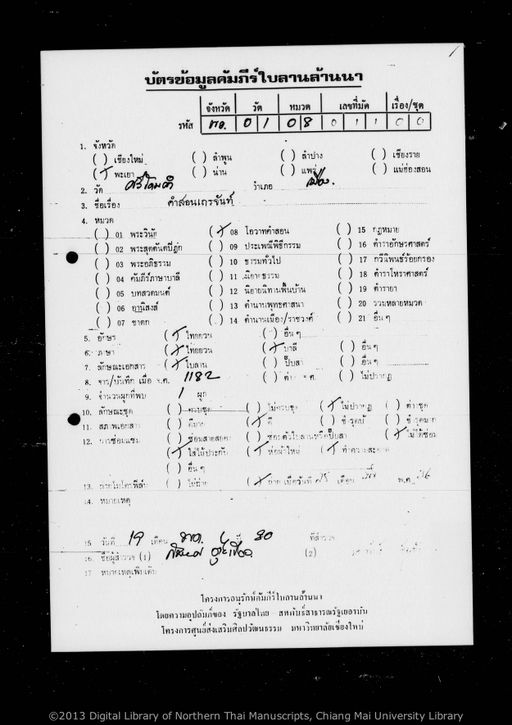 บัตรข้อมูลคัมภีร์ใบลานล้านนา
จังหวัด วัด หมวด เลขที่มัด เรื่อง/ชุด
รหัส พย. 0 1 0 8 0 1 1 0 0
1. จังหวัด
( ) เชียงใหม่ ( ) ลำพูน ( ) ลำปาง ( ) เชียงราย
(/) พะเยา ( ) น่าน ( ) แพร่ ( ) แม่ฮ่องสอน
2. วัด ศรีโคมคำ อำเภอ เมือง
3. ชื่อเรื่อง คำสอนเถรจันท์
4. หมวด
( ) 01 พระวินัย (/) 08 โอวาทคำสอน ( ) 15 กฎหมาย
( ) 02 พระสุตตันตปิฎก ( ) 09 ประเพณีพิธีกรรม ( ) 16 ตำราอักษรศาสตร์
( ) 03 พระอภิธรรม ( ) 10 ธรรมทั่วไป ( ) 17 กวีนิพนธ์ร้อยกรอง
( ) 04 คัมภีร์ภาษาบาลี ( ) 11 นิยายธรรม ( ) 18 ตำราโหราศาสตร์
( ) 05 บทสวดมนต์ ( ) 12 นิยายนิทานพื้นบ้าน ( ) 19 ตำรายา
( ) 06 อานิสงส์ ( ) 13 ตำนานพุทธศาสนา ( ) 20 รวมหลายหมวด
( ) 07 ชาดก ( ) 14 ตำนานเมือง/ราชวงศ์ ( ) 21 อื่นๆ
5. อักษร (/) ไทยยวน ( ) อื่นๆ
6. ภาษา (/) ไทยยวน (/) บาลี ( ) อื่นๆ
7. ลักษณะเอกสาร (/) ใบลาน ( ) ปั๊บสา ( ) อื่นๆ
8. จาร/บันทึก เมื่อ จ.ศ. 1182 ( ) ไม่ปรากฏ
9. จำนวนผูกที่พบ 1 ผูก
10. ลักษณะชุด ( ) ครบชุด ( ) ไม่ครบชุด (/) ไม่ปรากฏ ( )
11. สภาพเอกสาร ( ) ดีมาก (/) ดี ( ) ชำรุด ( ) ชำรุดมาก
12. การซ่อมแซม ( ) ( ) (/) ไม่ได้ซ่อม
(/) ใส่ไม้ประกับ (/) ห่อผ้าใหม่ (/) ทำความสะอาด
( ) อื่นๆ
13. ถ่ายไมโครฟิล์ม ( ) ไม่ถ่าย (/) ถ่าย เมื่อวันที่ เดือน พ.ศ.
14. หมายเหตุ
15 วันที่ 19 เดือน 30 ที่สำรวจ
16. ชื่อผู้สำรวจ (1) (2)
17 หมายเหตุเพิ่มเติม
โครงการอนุรักษ์คัมภีร์ใบลานล้านนา
โดยความอุปถัมภ์ของ รัฐบาลไทย สหพันธ์สาธารณรัฐเยอรมัน
โครงการศูนย์ส่งเสริมศิลปวัฒนธรรม มหาวิทยาลัยเชียงใหม่
©2013 Digital Library of Northern Thai Manuscripts, Chiang Mai University Library